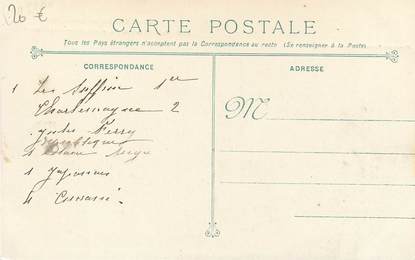 20 €
CARTE POSTALE
Tous les Pays étrangers n'acceptent pas la Correspondance au recto (Se renseigner à la Poste)
CORRESPONDANCE
ADRESSE
1 Les Suffren 1er
Charlemagne 2
Jules Ferry
1
1 Japonais
4
M